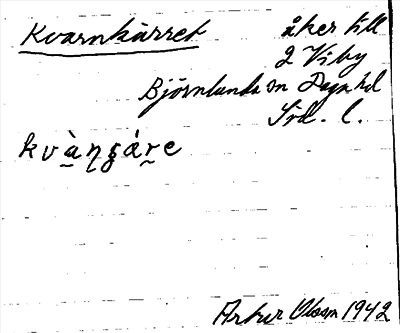 Kvarnkärret
åker till
2 Viby
Björnlunda sn Daga hd
Srd. l.
kvàngáre
Artur Olsson 1942